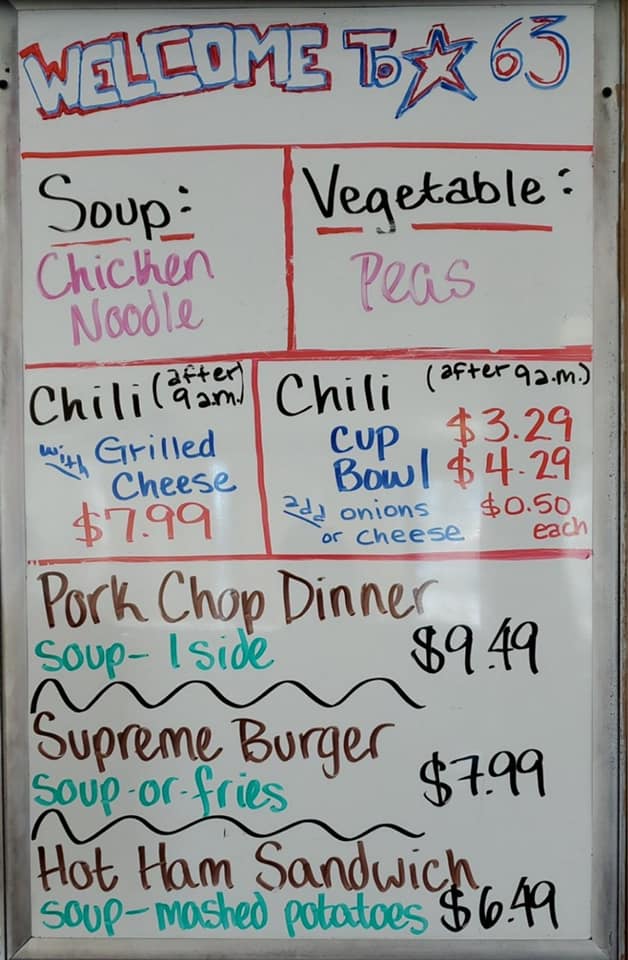 WELCOME To ☆ 63
Soup:
Chicken
Noodle
Vegetable:
Peas
Chili (after 9 a.m.)
with Grilled
Cheese
$7.99
Chili (after 9 a.m.)
cup $3.29
Bowl $4.29
add onions $0.50
or cheese each
Pork Chop Dinner
soup- 1 side $9.49
Supreme Burger
soup-or-fries $7.99
Hot Ham Sandwich
soup-mashed potatoes $6.49